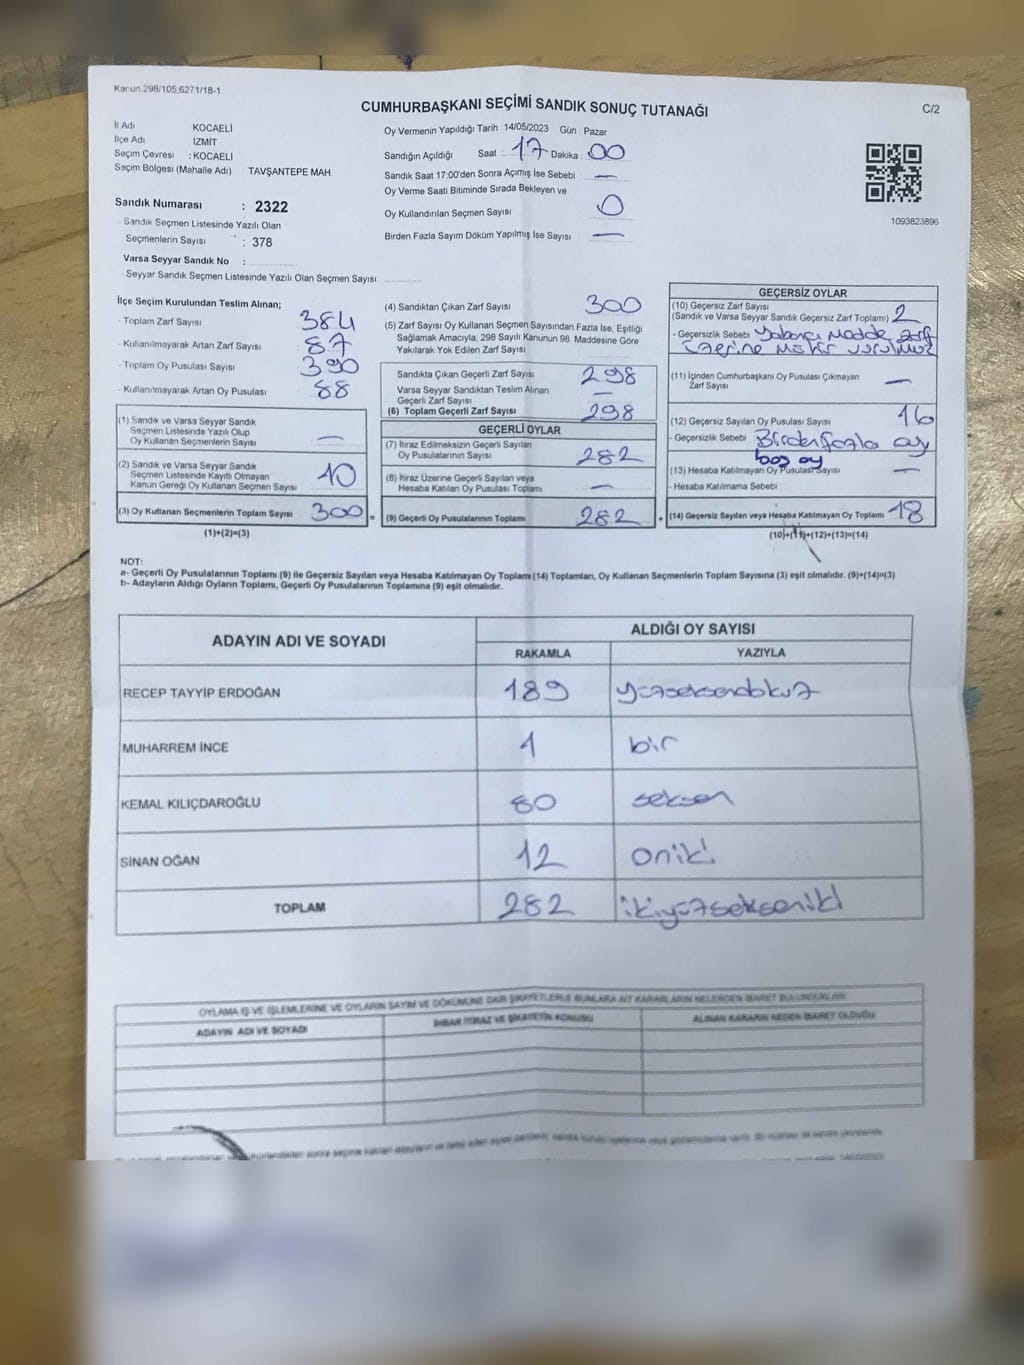 Kanun 298/105,6271/18-1
CUMHURBAŞKANI SEÇİMİ SANDIK SONUÇ TUTANAĞI
C/2
İl Adı KOCAELİ
İlçe Adı İZMİT
Seçim Çevresi : KOCAELİ
Seçim Bölgesi (Mahalle Adı) : TAVŞANTEPE MAH.
Sandık Numarası : 2322
Sandık Seçmen Listesinde Yazılı Olan
Seçmenlerin Sayısı : 378
Varsa Seyyar Sandık No :
Seyyar Sandık Seçmen Listesinde Yazılı Olan Seçmen Sayısı:
Oy Vermenin Yapıldığı Tarih : 14/05/2023 Gün : Pazar
Sandığın Açıldığı Saat : 17 Dakika : 00
Sandık Saat 17:00'den Sonra Açımış İse Sebebi : —
Oy Verme Saati Bitiminde Sırada Bekleyen ve
Oy Kullandırılan Seçmen Sayısı 0
Birden Fazla Sayım Döküm Yapılmış İse Sayısı —
1093823896
İlçe Seçim Kurulundan Teslim Alınan;
- Toplam Zarf Sayısı 384
- Kullanılmayarak Artan Zarf Sayısı 87
- Toplam Oy Pusulası Sayısı 390
- Kullanılmayarak Artan Oy Pusulası 88
(1) Sandık ve Varsa Seyyar Sandık
Seçmen Listesinde Yazılı Olup
Oy Kullanan Seçmenlerin Sayısı —
(2) Sandık ve Varsa Seyyar Sandık
Seçmen Listesinde Kayıtlı Olmayan
Kanun Gereği Oy Kullanan Seçmen Sayısı 10
(3) Oy Kullanan Seçmenlerin Toplam Sayısı 300 =
(1)+(2)=(3)
(4) Sandıktan Çıkan Zarf Sayısı 300
(5) Zarf Sayısı Oy Kullanan Seçmen Sayısından Fazla İse, Eşitliği
Sağlamak Amacıyla, 298 Sayılı Kanunun 98. Maddesine Göre
Yakılarak Yok Edilen Zarf Sayısı
Sandıkta Çıkan Geçerli Zarf Sayısı 298
Varsa Seyyar Sandıktan Teslim Alınan
Geçerli Zarf Sayısı —
(6) Toplam Geçerli Zarf Sayısı 298
GEÇERLİ OYLAR
(7) İtiraz Edilmeksizin Geçerli Sayılan
Oy Pusulalarının Sayısı 282
(8) İtiraz Üzerine Geçerli Sayılan veya
Hesaba Katılan Oy Pusulası Toplamı —
(9) Geçerli Oy Pusulalarının Toplamı 282 +
GEÇERSİZ OYLAR
(10) Geçersiz Zarf Sayısı
(Sandık ve Varsa Seyyar Sandık Geçersiz Zarf Toplamı) 2
- Geçersizlik Sebebi Yabancı Madde zarf
üzerine mühür vurulmuş
(11) İçinden Cumhurbaşkanı Oy Pusulası Çıkmayan
Zarf Sayısı —
(12) Geçersiz Sayılan Oy Pusulası Sayısı 16
- Geçersizlik Sebebi Birden fazla oy
boş oy
(13) Hesaba Katılmayan Oy Pusulası Sayısı —
- Hesaba Katılmama Sebebi
(14) Geçersiz Sayılan veya Hesaba Katılmayan Oy Toplamı 18
(10)+(11)+(12)+(13)=(14)
NOT:
a- Geçerli Oy Pusulalarının Toplamı (9) ile Geçersiz Sayılan veya Hesaba Katılmayan Oy Toplamı (14) Toplamları, Oy Kullanan Seçmenlerin Toplam Sayısına (3) eşit olmalıdır. (9)+(14)=(3)
b- Adayların Aldığı Oyların Toplamı, Geçerli Oy Pusulalarının Toplamına (9) eşit olmalıdır.
ADAYIN ADI VE SOYADI ALDIĞI OY SAYISI
RAKAMLA YAZIYLA
RECEP TAYYİP ERDOĞAN 189 yüzseksendokuz
MUHARREM İNCE 1 bir
KEMAL KILIÇDAROĞLU 80 seksen
SİNAN OĞAN 12 oniki
TOPLAM 282 ikiyüzsekseniki
OYLAMA İŞ VE İŞLEMLERİNE VE OYLARIN SAYIM VE DÖKÜMÜNE DAİR ŞİKAYETLERLE BUNLARA AİT KARARLARIN NELERDEN İBARET BULUNDUKLARI
ADAYIN ADI VE SOYADI İHBAR İTİRAZ VE ŞİKAYETİN KONUSU ALINAN KARARIN NEDEN İBARET OLDUĞU